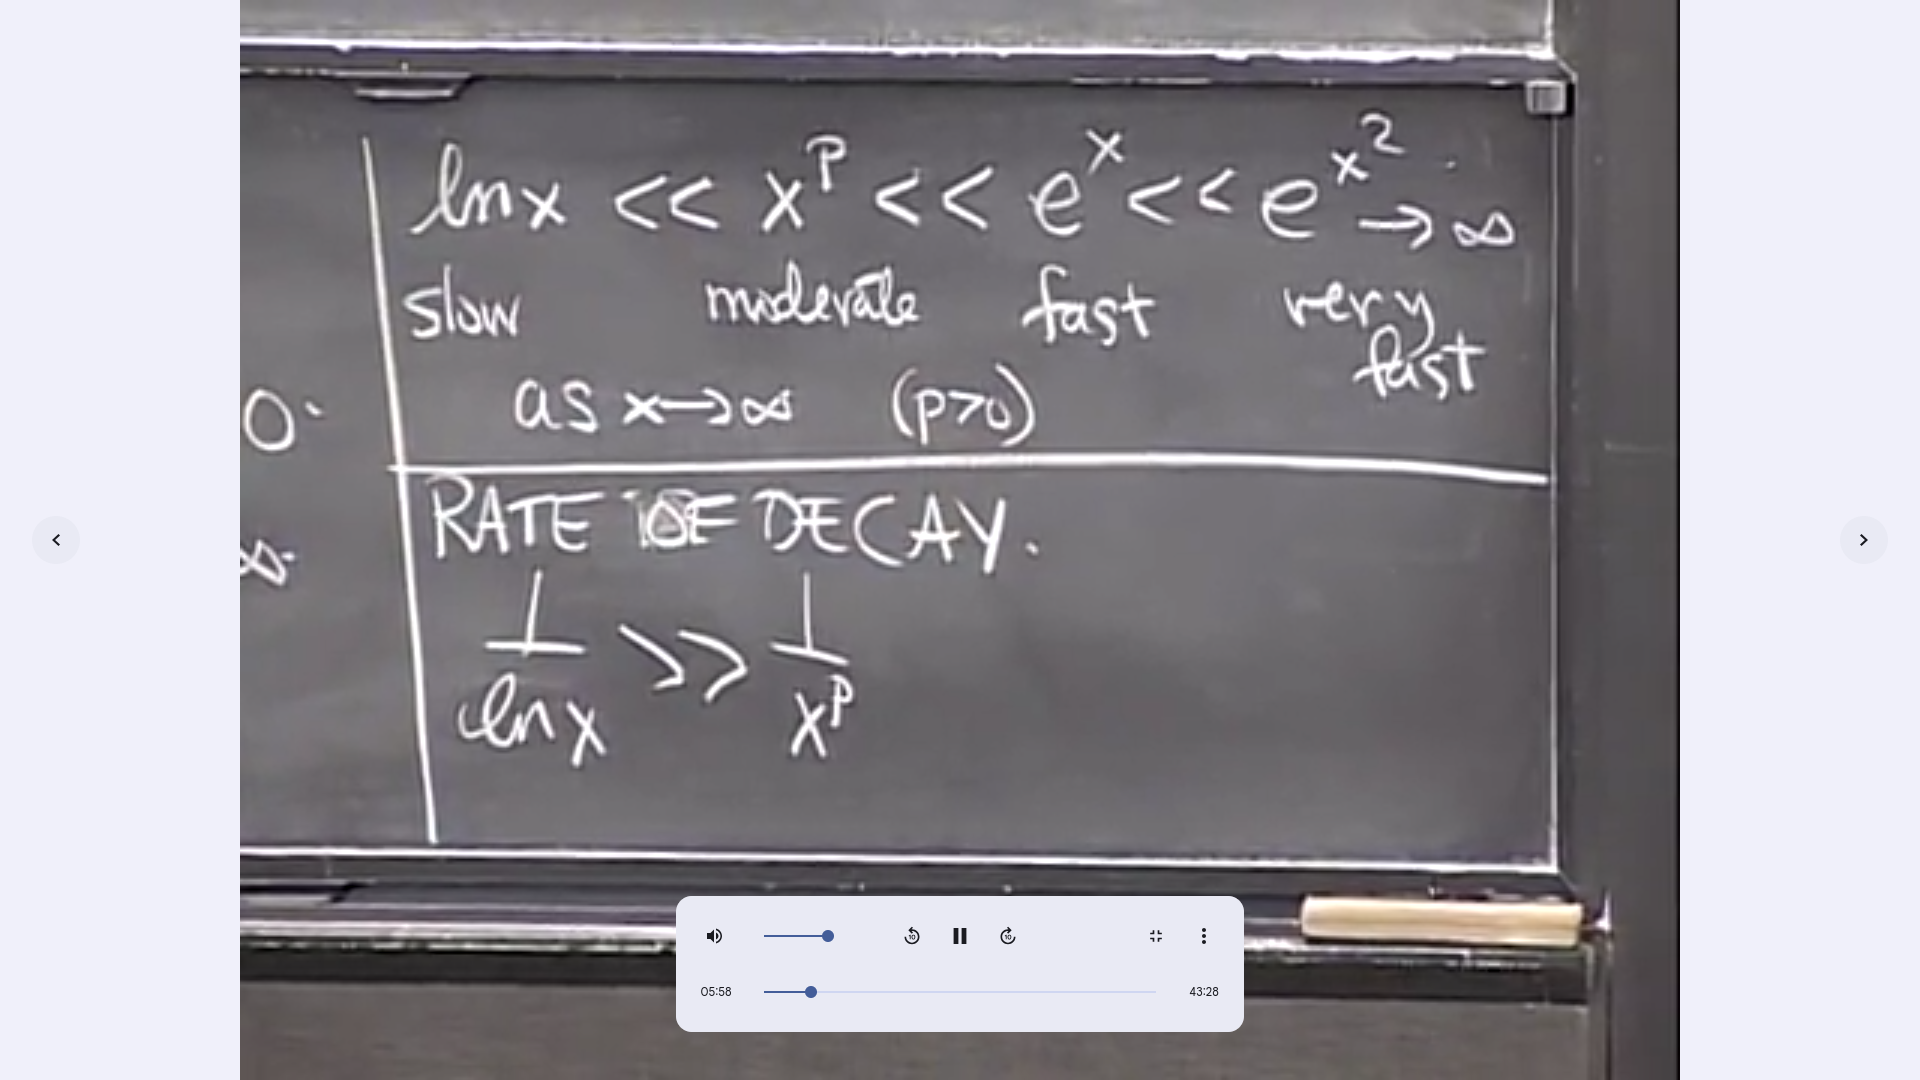 ln x << x^p << e^x << e^x^2 → ∞
slow moderate fast very fast
as x → ∞ (p>0)
0.
∞.
RATE OF DECAY.
1/ln x >> 1/x^p
05:58 43:28